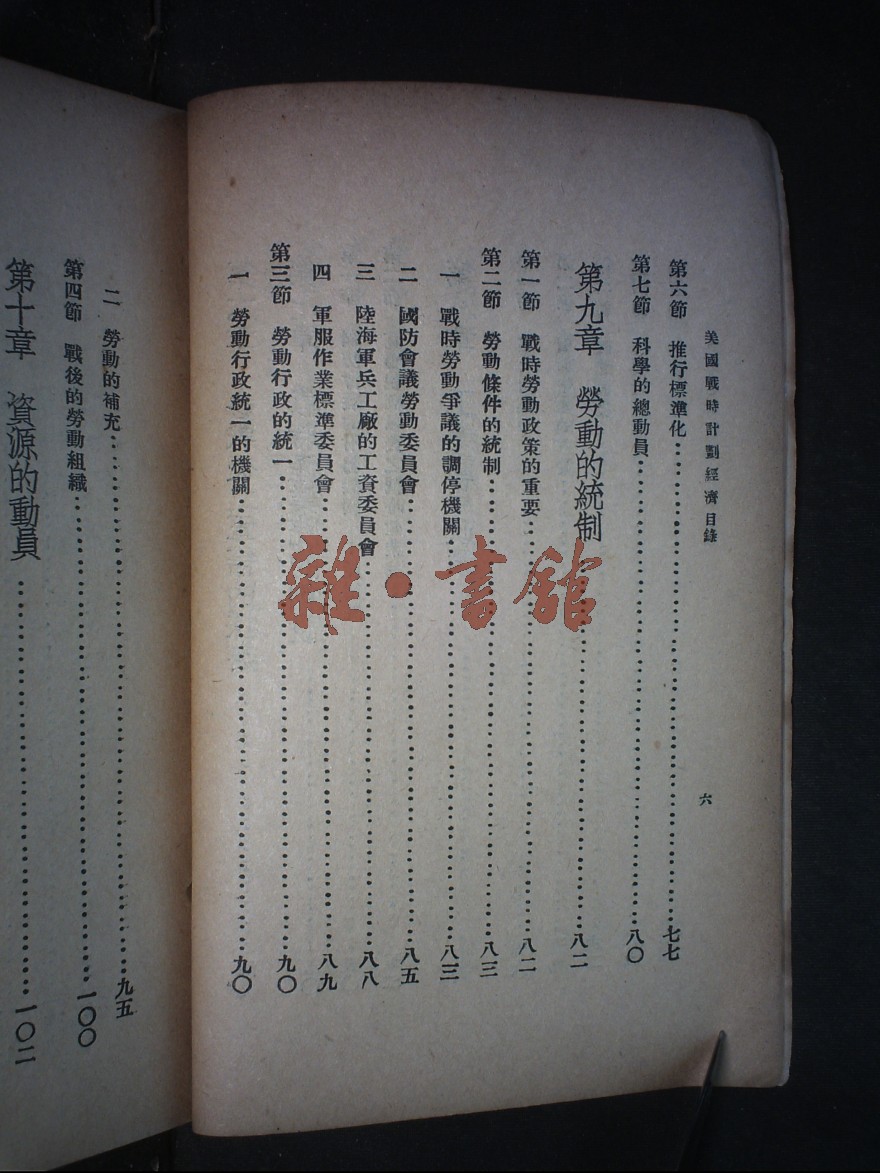 美國戰時計劃經濟目錄
六
第六節 推行標準化……七七
第七節 科學的總動員……八〇
第九章 勞動的統制……八二
第一節 戰時勞動政策的重要……八二
第二節 勞動條件的統制……八三
一 戰時勞動爭議的調停機關……八三
二 國防會議勞動委員會……八五
三 陸海軍兵工廠的工資委員會……八八
四 軍服作業標準委員會……八九
第三節 勞動行政的統一……九〇
一 勞動行政統一的機關……九〇
二 勞動的補充……九五
第四節 戰後的勞動組織……一〇〇
第十章 資源的動員……一〇二
雜·書館